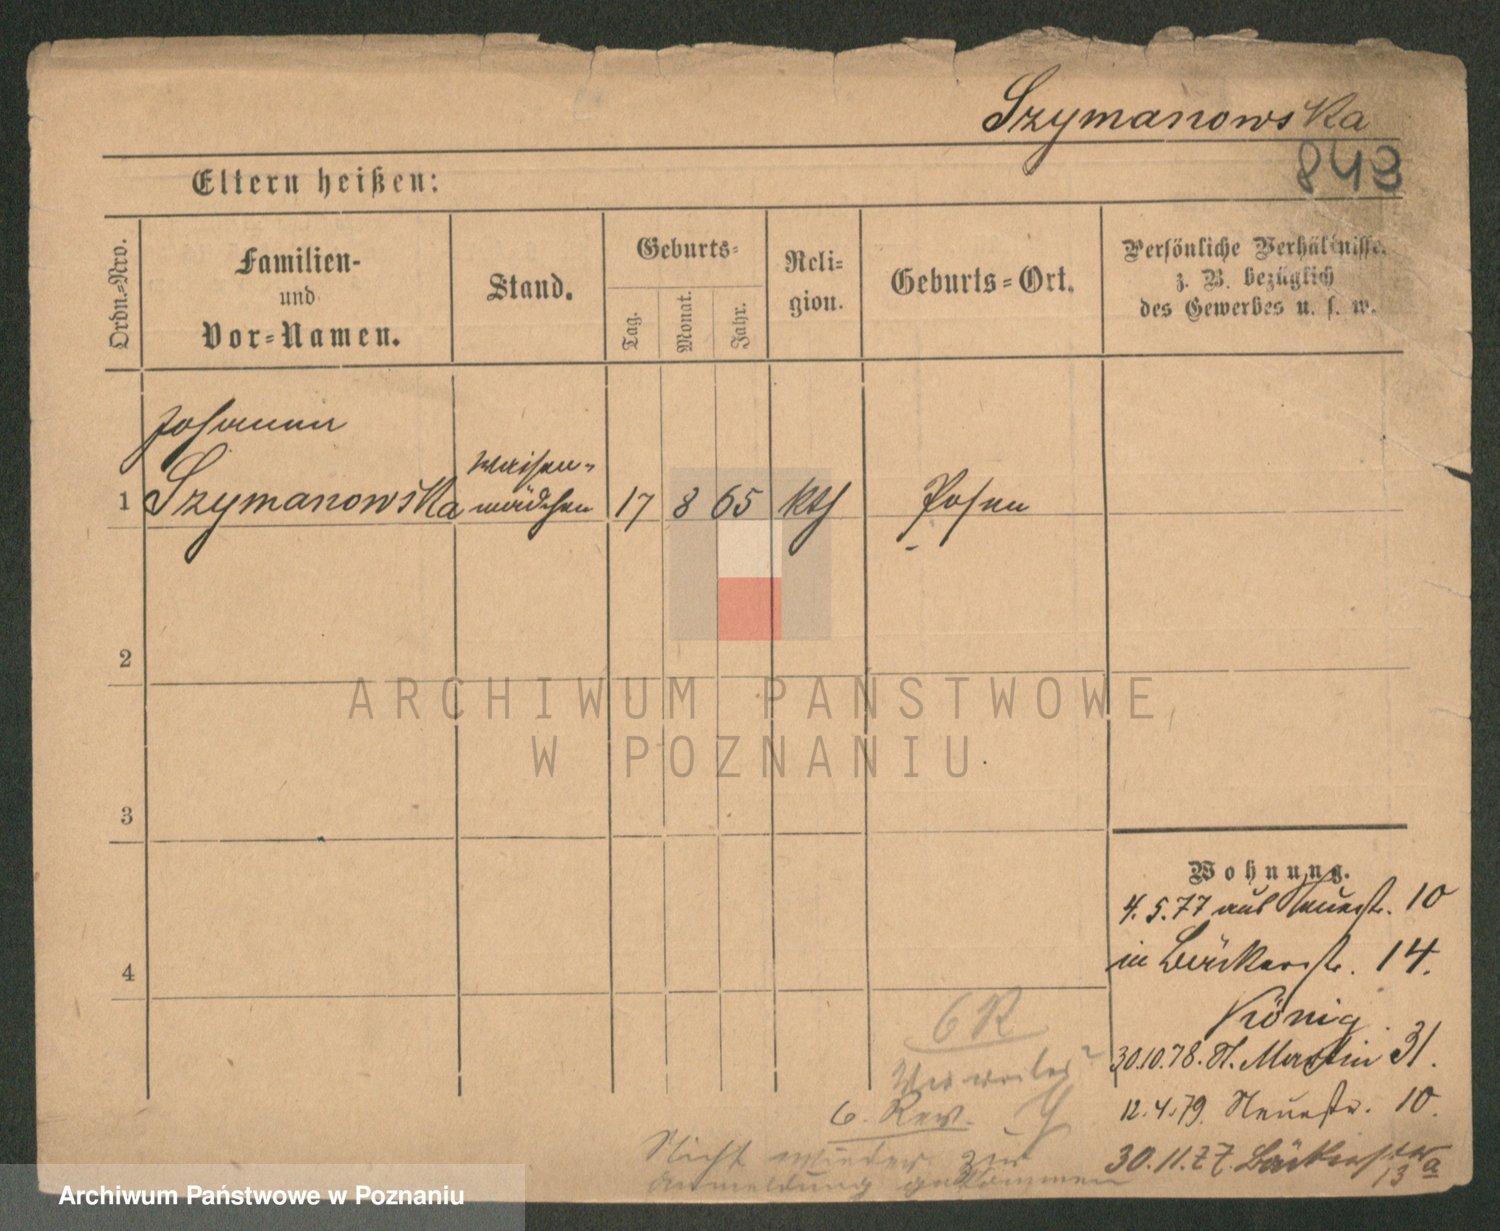 Szymanowska
843
Eltern heißen:
Ordn.-Nro.
Familien-
und
Vor-Namen.
Stand.
Geburts-
Tag.
Monat.
Jahr.
Reli-
gion.
Geburts-Ort.
Persönliche Verhältnisse.
z. B. bezüglich
des Gewerbes u. s. w.
Johanna
1 Szymanowska
Waisen-
mädchen
17 8 65 kth Posen
2
3
4
Wohnung.
4.5.77 aus Neuestr. 10
in Bäckerstr. 14.
König.
30.10.78. St. Martin 31.
12.4.79. Neuestr. 10.
30.11.77. Bäckerstr.
13a
6 R
6. Rev.
Nicht wieder zur
Anmeldung gekommen
ARCHIWUM PAŃSTWOWE
W POZNANIU
Archiwum Państwowe w Poznaniu